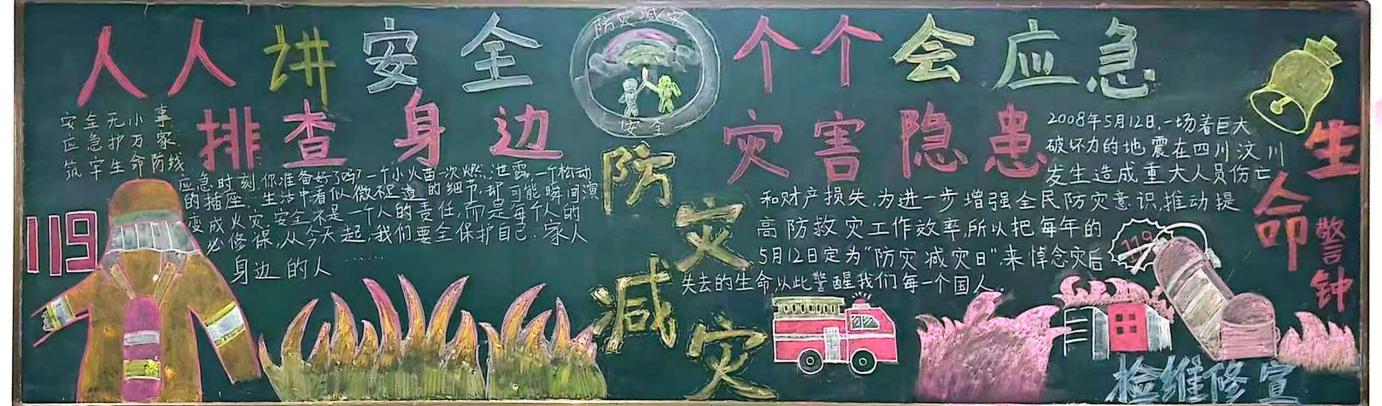 人人讲安全
个个会应急
排查身边
灾害隐患
防灾减灾
安全
防灾减灾
安全无小事
应急护万家
筑牢生命防线
119
应急时刻,你准备好了吗?一个小火苗一次燃、泄露,一个松动
的插座.生活中看似微不足道的细节,却可能瞬间演
变成火灾,安全不是一个人的责任,而是每个人的
必修课,从今天起,我们要全保护自己、家人
身边的人......
2008年5月12日,一场着巨大
破坏力的地震在四川汶川
发生造成重大人员伤亡
和财产损失.为进一步增强全民防灾意识,推动提
高防救灾工作效率,所以把每年的
5月12日定为“防灾减灾日”.来悼念灾后
失去的生命,以此警醒我们每一个国人.
119
生命
警钟
检维修宣